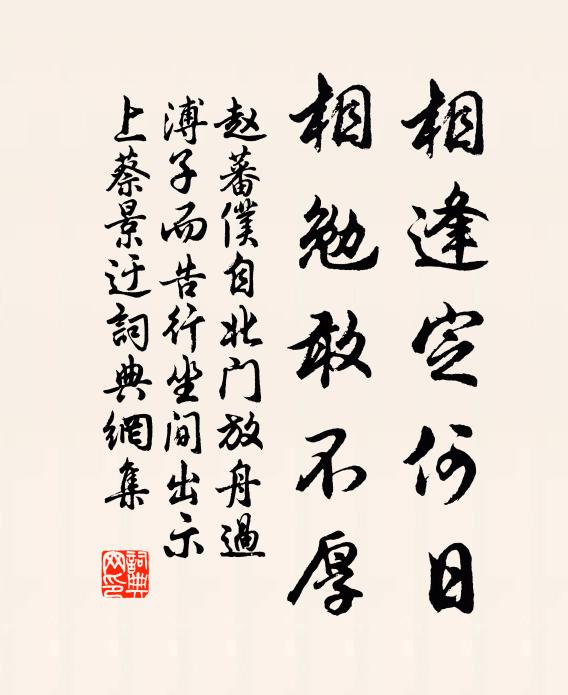 相逢定何日
相勉敢不厚
赵蕃僕自北门放舟過
溥子而告行坐间出示
上蔡景迂詞典網集
詞典网印